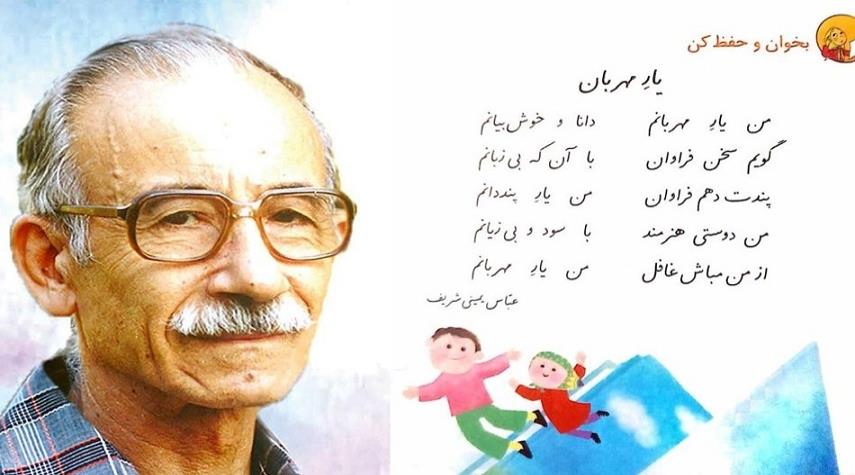 بخوان و حفظ کن
یارِ مهربان
من یارِ مهربانم دانا و خوش بیانم
گویم سخن فراوان با آن که بی زبانم
پندت دهم فراوان من یارِ پنددانم
من دوستی هنرمند با سود و بی زیانم
از من مباش غافل من یارِ مهربانم
عبّاس یمینی شریف